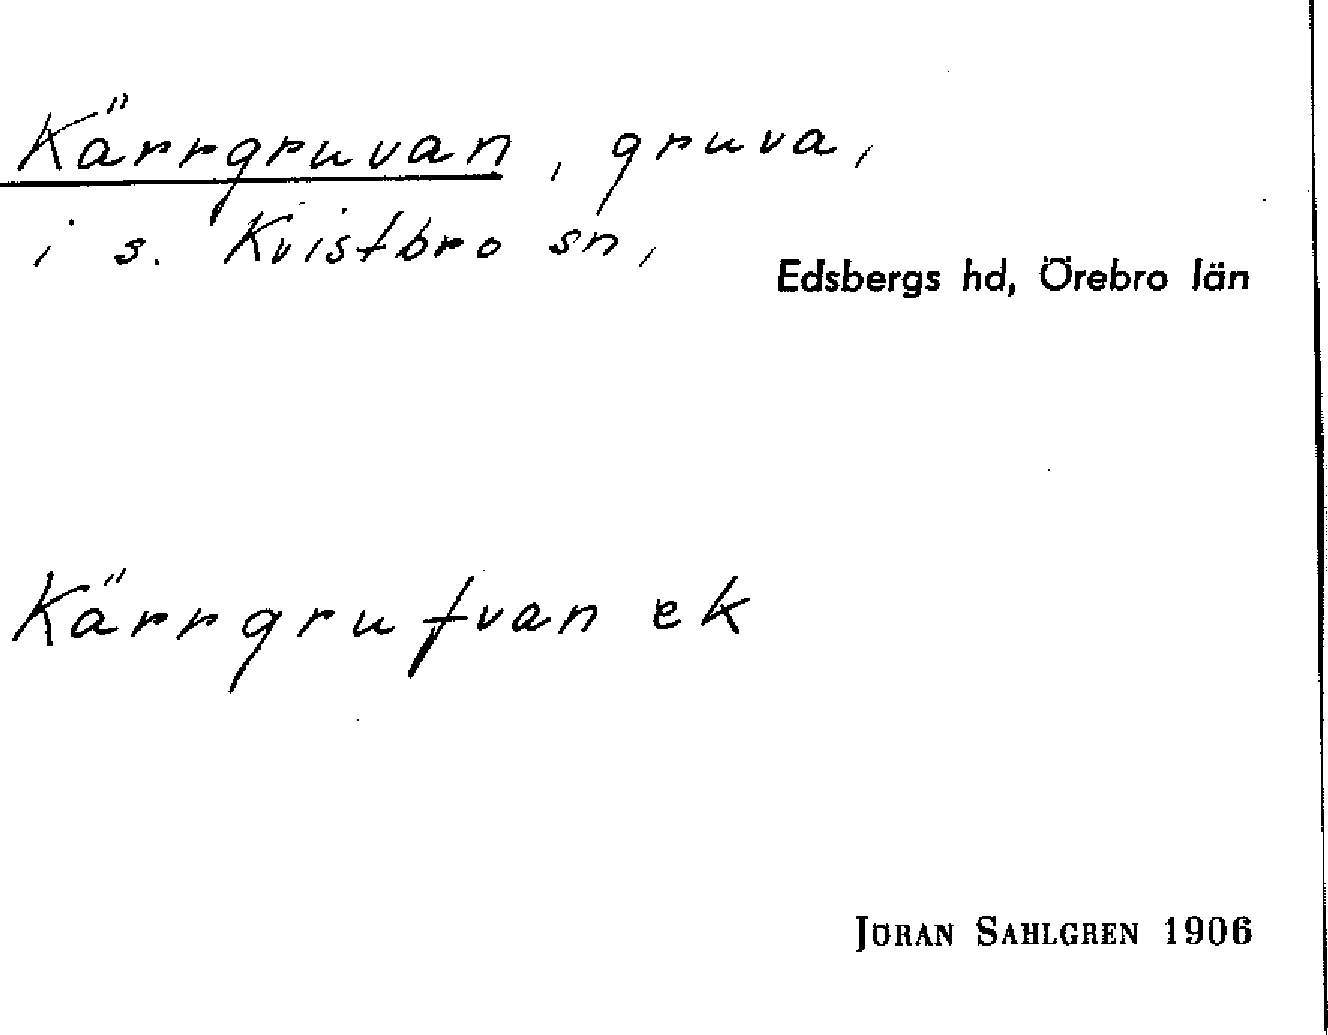 Kärrgruvan, gruva,
i s. Kvistbro sn,
Edsbergs hd, Örebro län
Kärrgrufvan ek
JÖRAN SAHLGREN 1906